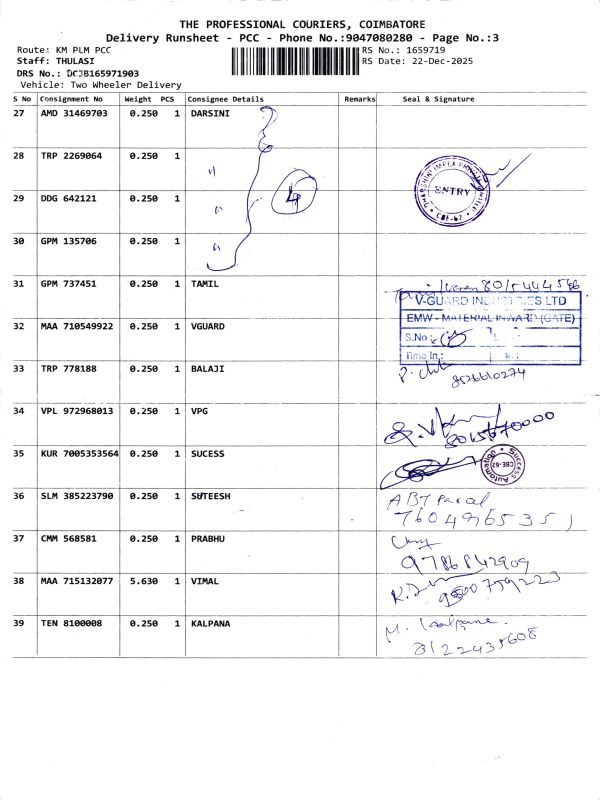 THE PROFESSIONAL COURIERS, COIMBATORE
Delivery Runsheet - PCC - Phone No.:9047080280 - Page No.:3
Route: KM PLM PCC RS No.: 1659719
Staff: THULASI RS Date: 22-Dec-2025
DRS No.: DCJB165971903
Vehicle: Two Wheeler Delivery
S No Consignment No Weight PCS Consignee Details Remarks Seal & Signature
27 AMD 31469703 0.250 1 DARSINI
28 TRP 2269064 0.250 1 "
4
ENTRY
CBE-62
29 DDG 642121 0.250 1 "
30 GPM 135706 0.250 1 "
31 GPM 737451 0.250 1 TAMIL
V-GUARD INDUSTRIES LTD
32 MAA 710549922 0.250 1 VGUARD EMW - MATERIAL INWARD (GATE)
S.No
Time In:
33 TRP 778188 0.250 1 BALAJI
8526610274
34 VPL 972968013 0.250 1 VPG
35 KUR 7005353564 0.250 1 SUCESS Success Automation CBE-62
36 SLM 385223790 0.250 1 SUTEESH ABT Parcel
7604965351
37 CMM 568581 0.250 1 PRABHU
9786842909
38 MAA 715132077 5.630 1 VIMAL
9500759223
39 TEN 8100008 0.250 1 KALPANA M. Kalpana.
8122435608